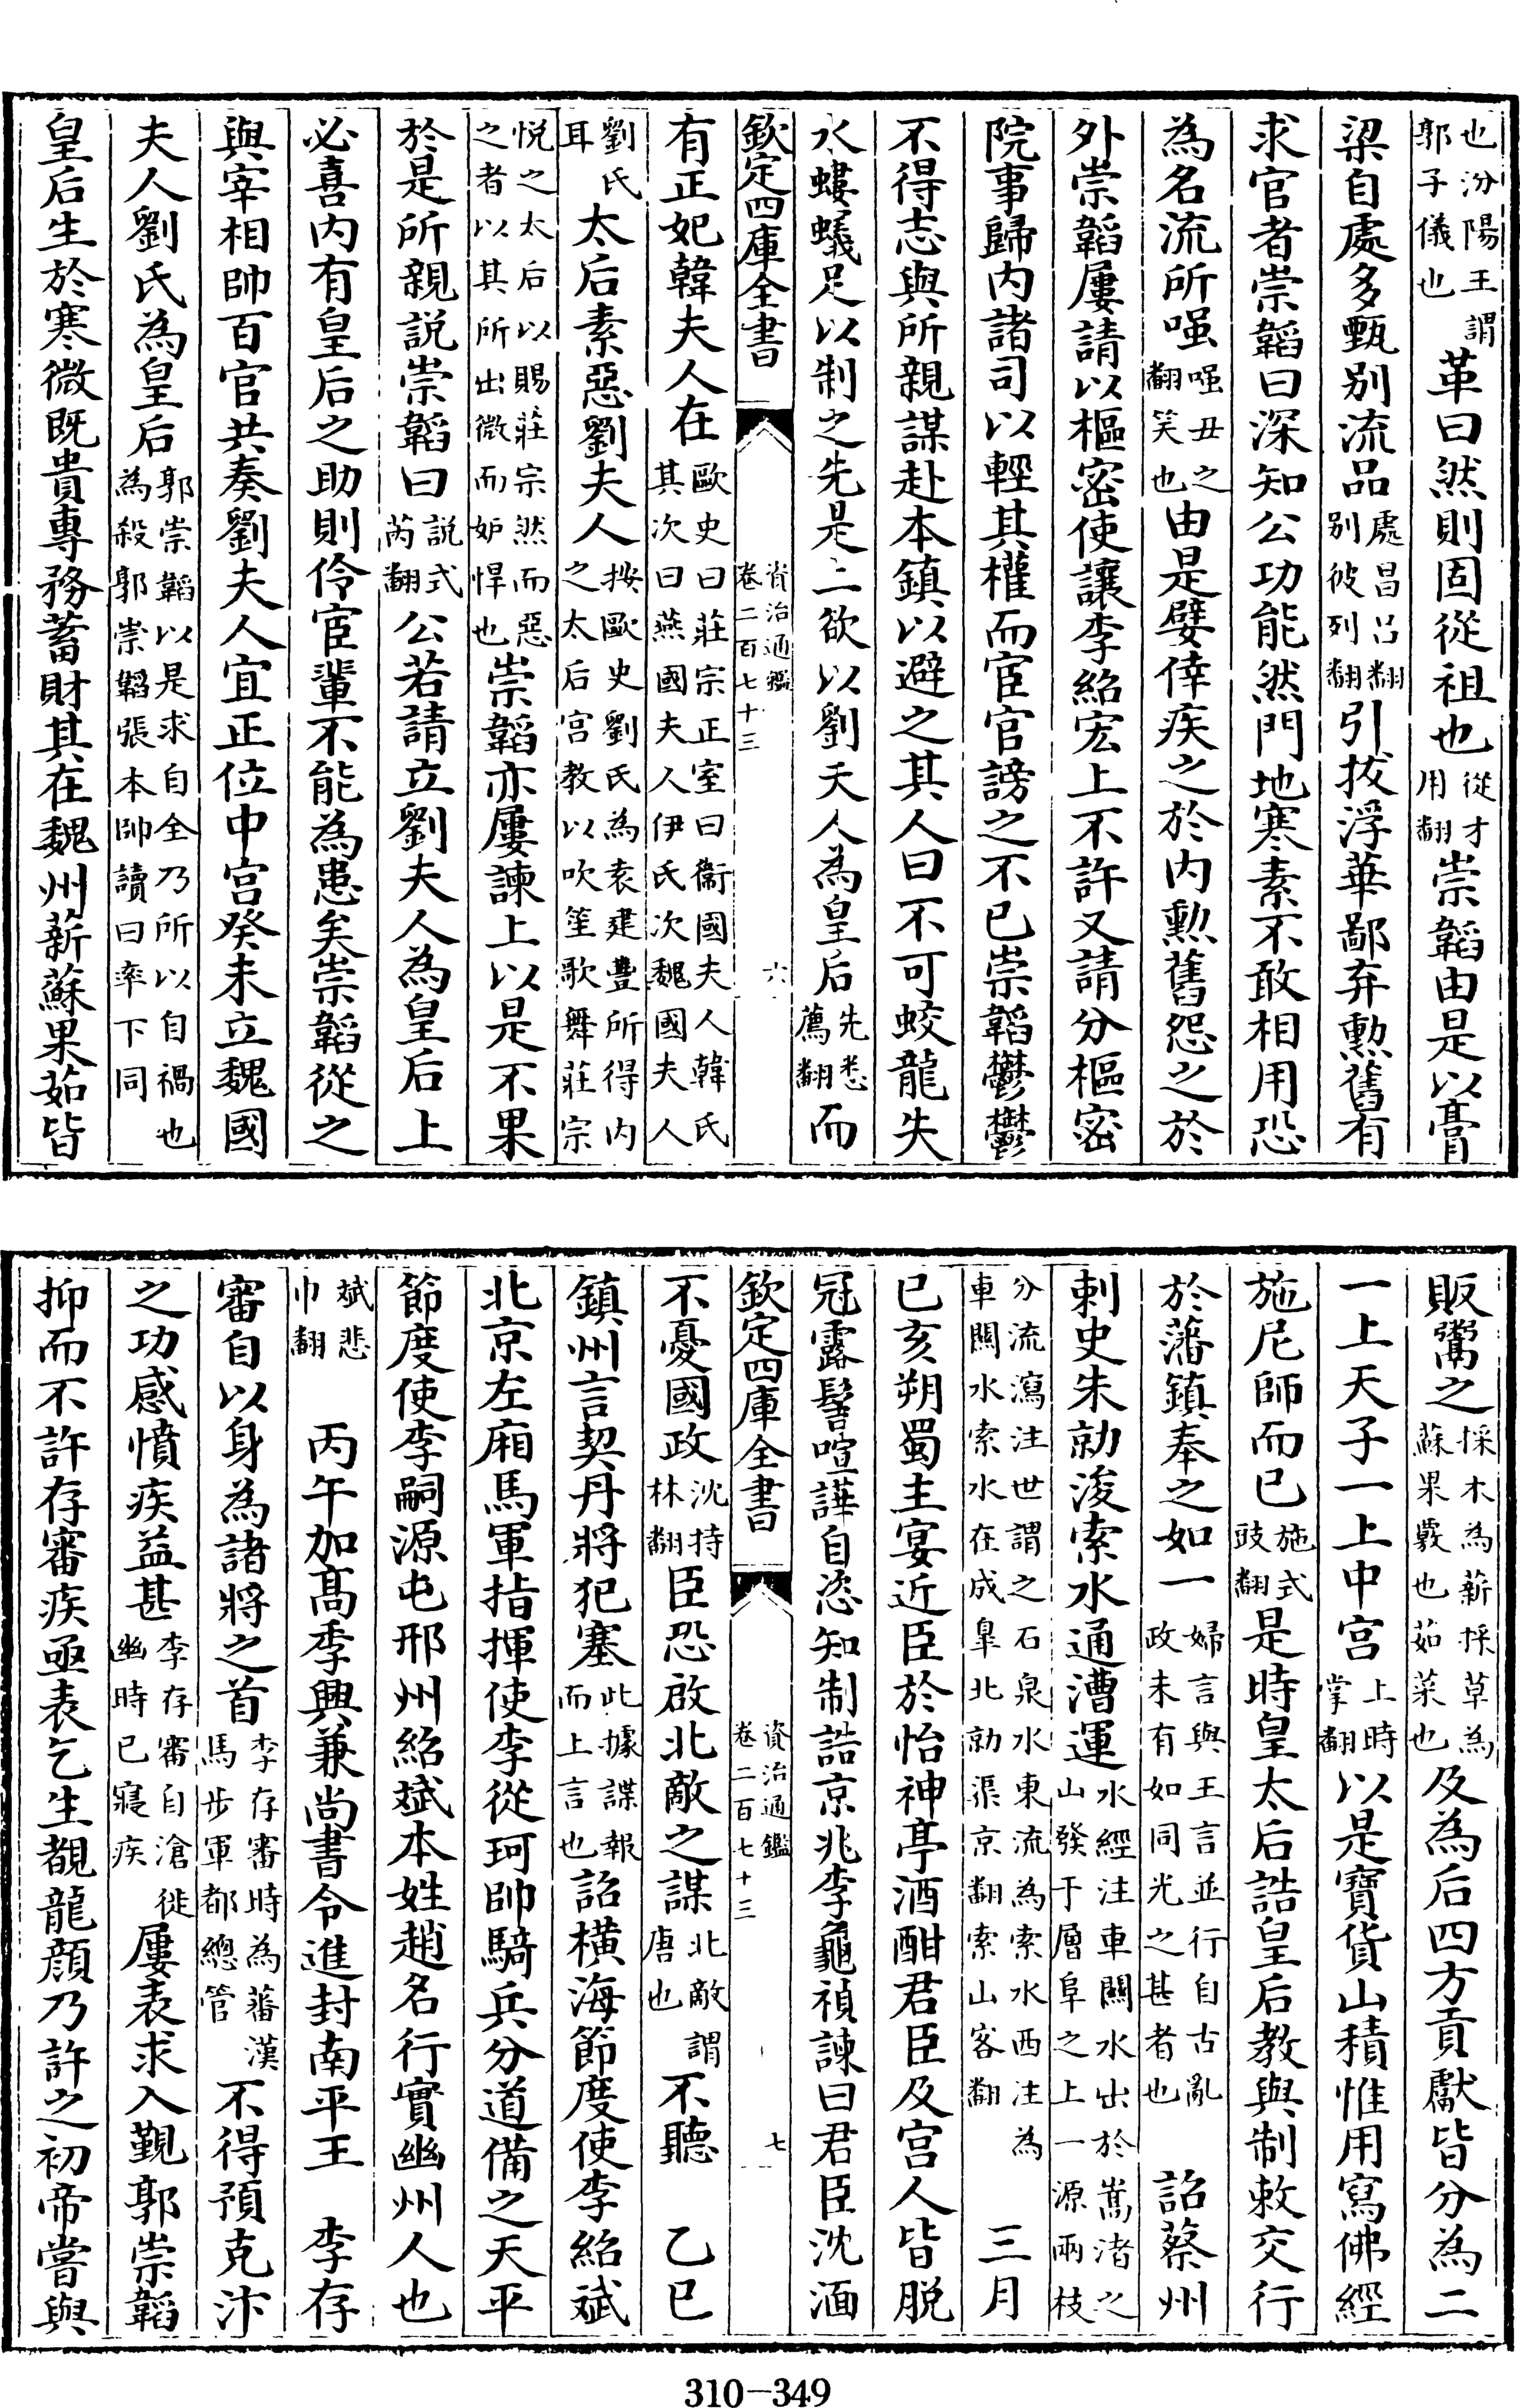 也汾陽王謂郭子儀也革曰然則固從祖也從才用翻崇韜由是以膏
梁自處多甄别流品處昌吕翻别彼列翻引拔浮華鄙弃勲舊有
求官者崇韜曰深知公功能然門地寒素不敢相用恐
為名流所嗤嗤丑之翻笑也由是嬖倖疾之於内勲舊怨之於
外崇韜屢請以樞密使讓李紹宏上不許又請分樞密
院事歸内諸司以輕其權而宦官謗之不已崇韜鬱鬱
不得志與所親謀赴本鎮以避之其人曰不可蛟龍失
水螻蟻足以制之先是上欲以劉夫人為皇后先悉薦翻而
欽定四庫全書 資治通鑑卷二百七十三 六
有正妃韓夫人在歐史曰莊宗正室曰衞國夫人韓氏其次曰燕國夫人伊氏次魏國夫人
劉氏耳太后素惡劉夫人按歐史劉氏為袁建豐所得内之太后宫教以吹笙歌舞莊宗
悦之太后以賜莊宗然而惡之者以其所出微而妒悍也崇韜亦屢諫上以是不果
於是所親説崇韜曰説式芮翻公若請立劉夫人為皇后上
必喜内有皇后之助則伶宦輩不能為患矣崇韜從之
與宰相帥百官共奏劉夫人宜正位中宫癸未立魏國
夫人劉氏為皇后郭崇韜以是求自全乃所以自禍也為殺郭崇韜張本帥讀曰率下同
皇后生於寒微既貴專務蓄財其在魏州薪蘇果茹皆
販鬻之採木為薪採草為蘇果蓏也茹菜也及為后四方貢獻皆分為二
一上天子一上中宫上時掌翻以是寶貨山積惟用寫佛經
施尼師而已施式豉翻是時皇太后誥皇后教與制敕交行
於藩鎮奉之如一婦言與王言並行自古亂政未有如同光之甚者也 詔蔡州
刺史朱勍浚索水通漕運水經注車關水出於嵩渚之山發于層阜之上一源兩枝
分流瀉注世謂之石泉水東流為索水西注為車關水索水在成臯北勍渠京翻索山客翻 三月
己亥朔蜀主宴近臣於怡神亭酒酣君臣及宫人皆脱
冠露髻喧譁自恣知制誥京兆李龜禎諫曰君臣沈湎
欽定四庫全書 資治通鑑卷二百七十三 七
不憂國政沈持林翻臣恐啟北敵之謀北敵謂唐也不聽 乙巳
鎮州言契丹將犯塞此據諜報而上言也詔横海節度使李紹斌
北京左廂馬軍指揮使李從珂帥騎兵分道備之天平
節度使李嗣源屯邢州紹斌本姓趙名行實幽州人也
斌悲巾翻 丙午加高季興兼尚書令進封南平王 李存
審自以身為諸將之首李存審時為蕃漢馬步軍都總管不得預克汴
之功感憤疾益甚李存審自滄徙幽時已寢疾屢表求入覲郭崇韜
抑而不許存審疾亟表乞生覩龍顔乃許之初帝嘗與
310—349